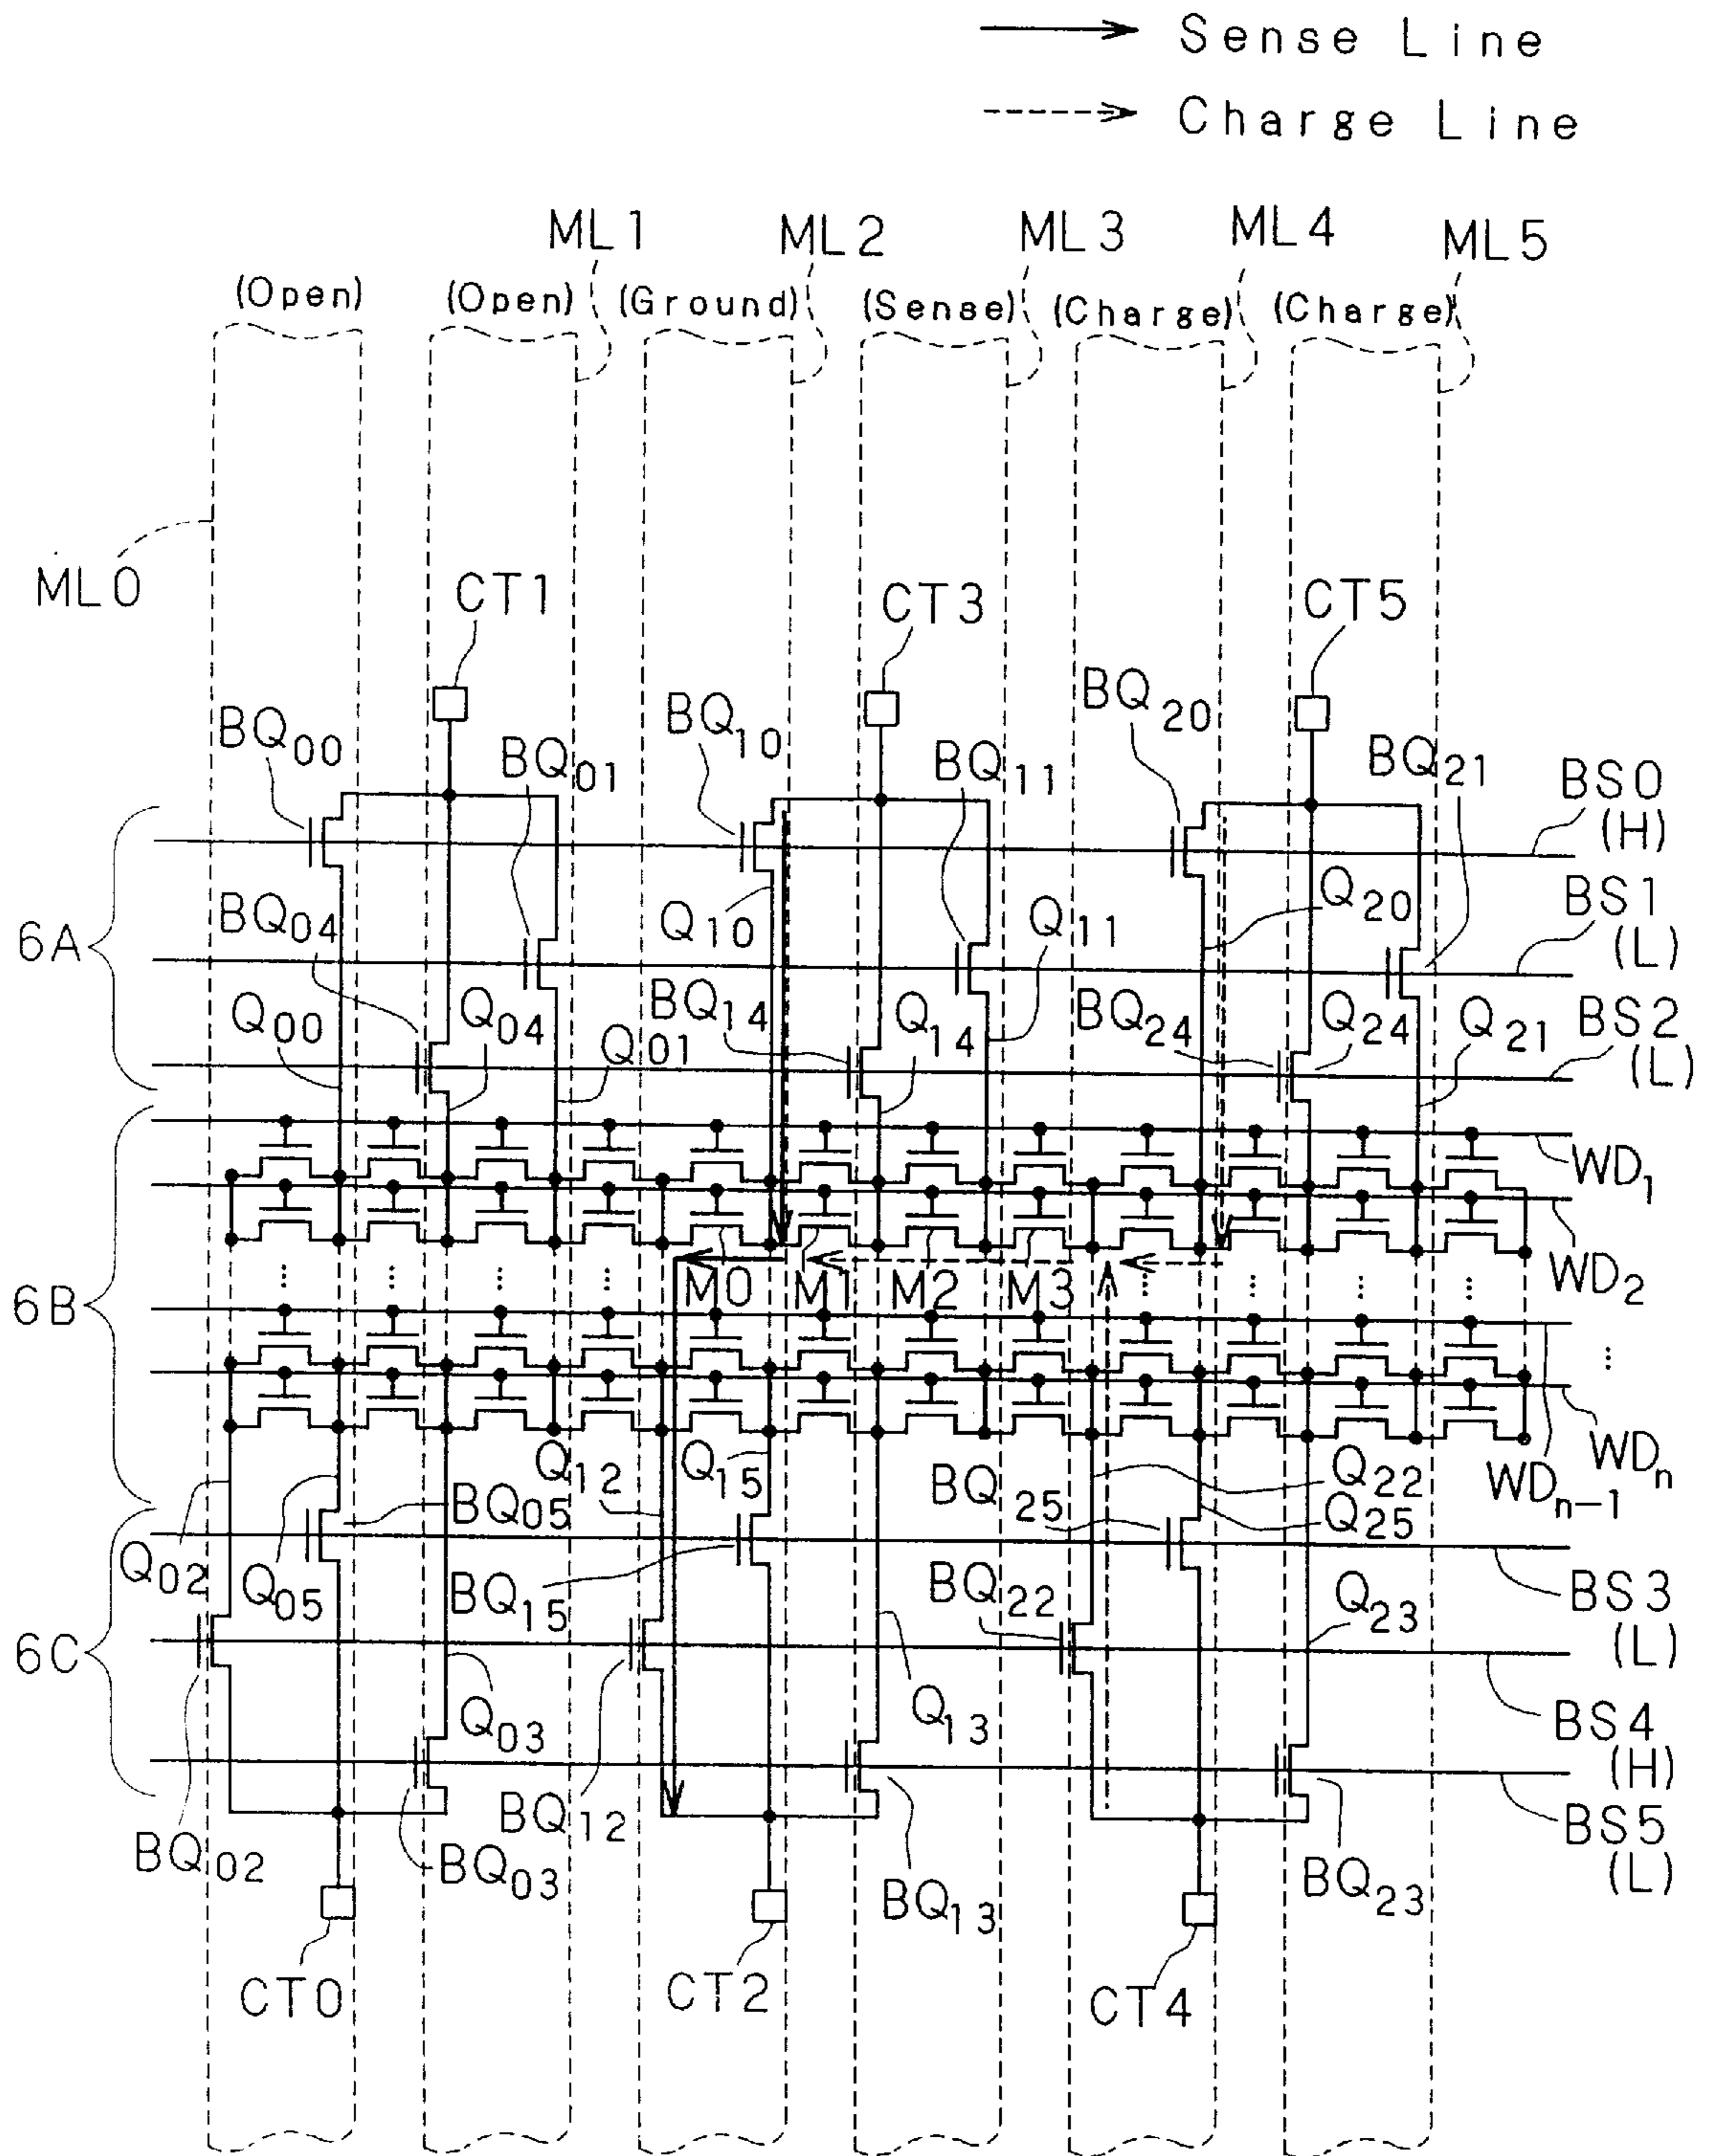 Sense Line
Charge Line
ML1
ML2
ML3
ML4
ML5
(Open)
(Open)
(Ground)
(Sense)
(Charge)
(Charge)
ML0
CT1
CT3
CT5
BQ00
BQ01
BQ10
BQ11
BQ20
BQ21
BS0
(H)
6A
BQ04
Q10
Q11
Q20
BS1
(L)
Q00
Q04
Q01
BQ14
Q14
BQ24
Q24
Q21
BS2
(L)
WD1
6B
M0
M1
M2
M3
WD2
⋮
Q12
Q15
Q22
WDn
WDn-1
Q02
Q05
BQ05
BQ25
Q25
BS3
(L)
6C
BQ15
BQ22
Q23
Q03
Q13
BS4
(H)
BQ02
BQ03
BQ12
BQ13
BQ23
BS5
(L)
CT0
CT2
CT4